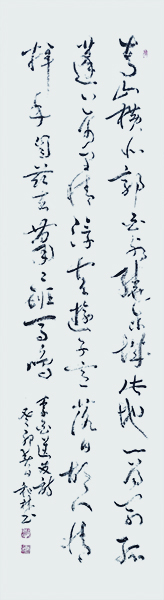 青山横北郭白水繞東城此地一為別孤
蓬万里情浮雲遊子意落日故人情
揮手自茲去蕭蕭班馬鳴
李白送友人詩